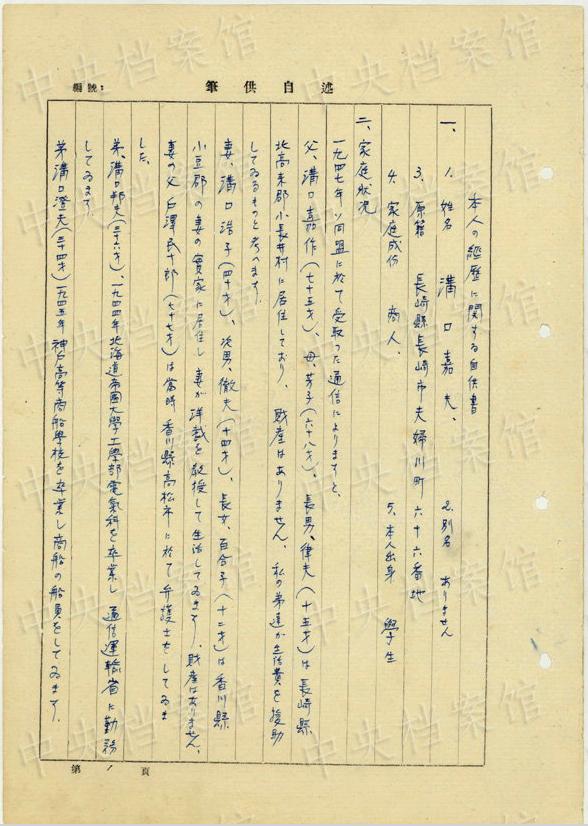 編號：
筆供自述
本人の經歷に関する自供書
一、1. 姓名 溝口嘉夫、 2. 別名 ありません
3. 原籍 長崎縣長崎市夫婦川町六十六番地
4. 家庭成份 商人、 5. 本人出身 學生
二、家庭狀况
一九四七年ソ同盟に於て受取った通信によりますと、
父、溝口嘉作(七十五才)、母、芳子(六十八才)、長男、律夫(十五才)は長崎縣
北高来郡小長井村に居住しており、財産はありません、私の弟達が生活費を援助
してゐるものと考へます、
妻、溝口浩子(四十才)、次男、徹夫(十四才)、長女、百合子(十二才)は香川縣
小豆郡の妻の實家に居住し妻が洋裁を教授して生活してゐます、財産はありません、
妻の父戸澤民十郎(七十七才)は當時香川縣高松市に於て弁護士をしてゐま
した、
弟、溝口邦夫(三十六才)、一九四四年北海道帝國大學工學部電氣科を卒業し通信運輸省に勤務
してゐます、
弟溝口澄夫(三十四才)一九四五年神戸高等商船學校を卒業し商船の船員をしてゐます、
第 1 頁
中央档案馆